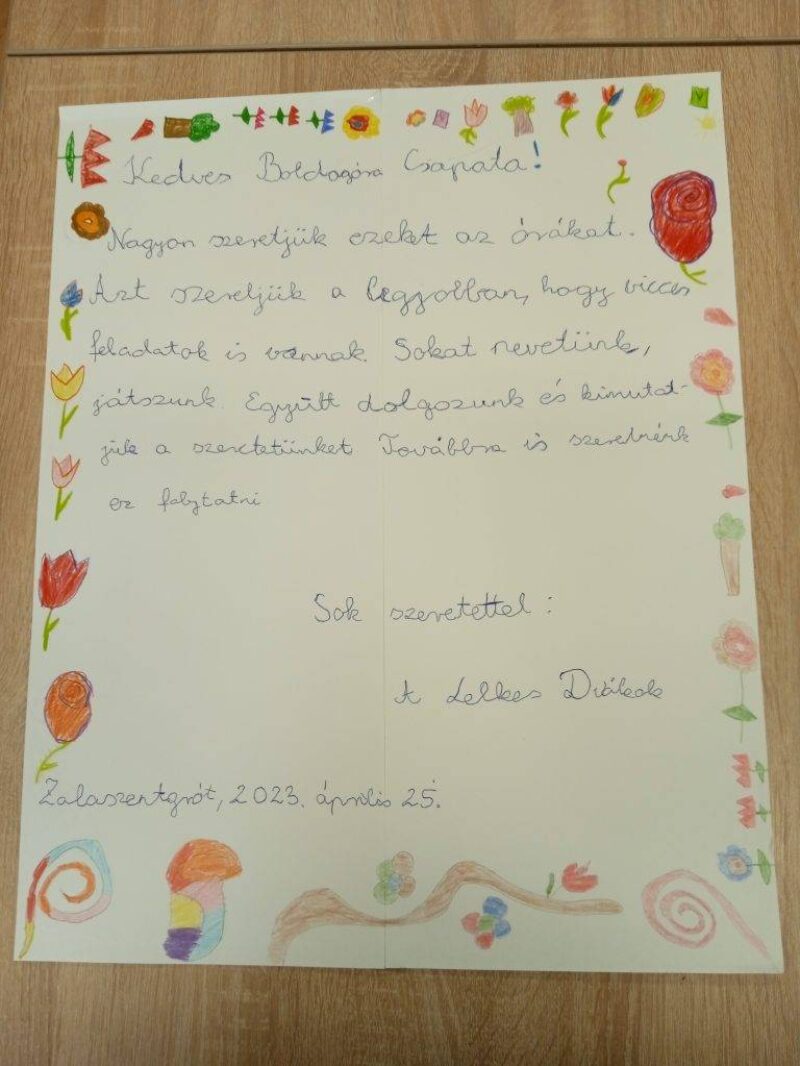 Kedves Boldogóra Csapata!
Nagyon szeretjük ezeket az órákat.
Azt szeretjük a legjobban, hogy vicces
feladatok is vannak. Sokat nevetünk,
játszunk. Együtt dolgozunk és kimutat-
juk a szeretetünket Továbbra is szeretnénk
ez folytatni
Sok szeretettel:
A Lelkes Diákok
Zalaszentgrót, 2023. április 25.